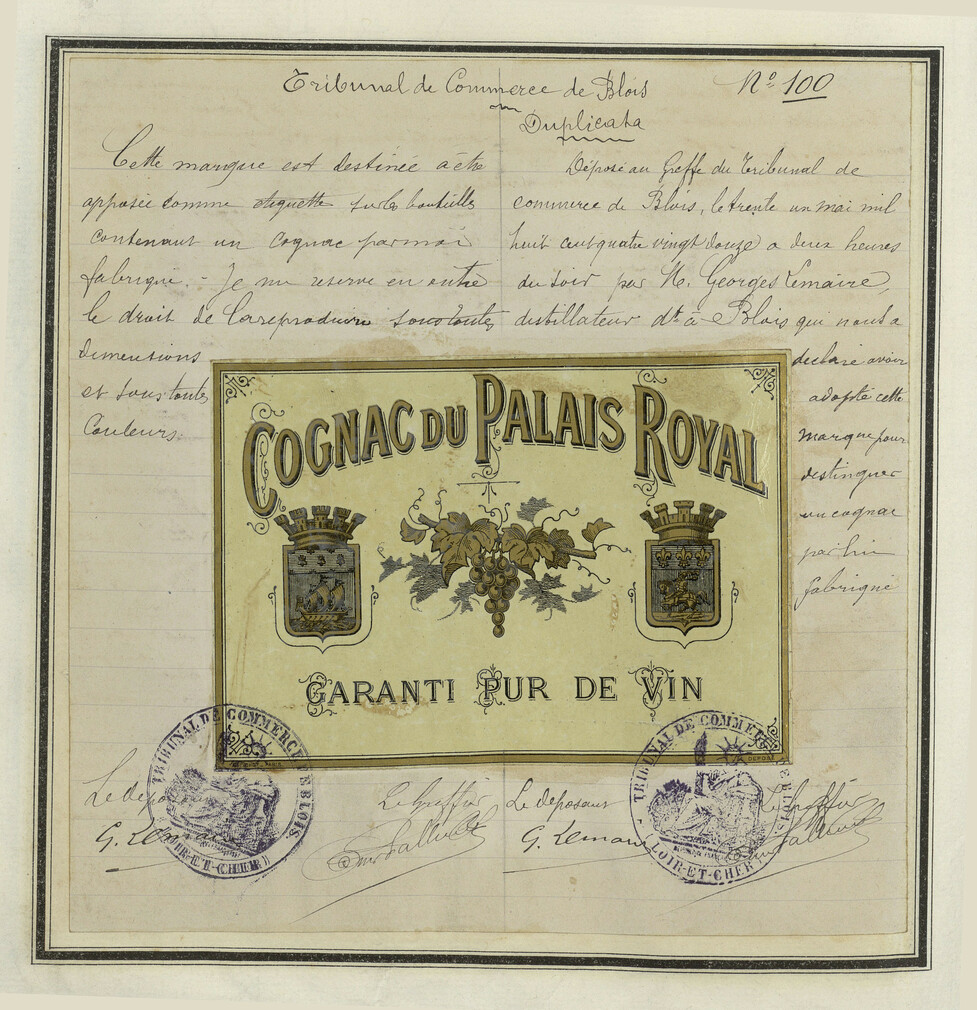 Tribunal de Commerce de Blois
Nº 100
Duplicata
Cette marque est destinée à être
apposée comme etiquette sur les bouteilles
contenant un Cognac par moi
fabriqué. Je me reserve en outre
le droit de la reproduire sous toutes
dimensions
et sous toutes
Couleurs.
Déposé au Greffe du Tribunal de
commerce de Blois, le trente un mai mil
huit cent quatre vingt douze a deux heures
du soir par M. Georges Lemaire,
distillateur dt à Blois qui nous a
declaré avoir
adopté cette
marque pour
distinguer
un cognac
par lui
fabriqué
COGNAC DU PALAIS ROYAL
GARANTI PUR DE VIN
DEPOSÉ
TRIBUNAL DE COMMERCE DE BLOIS
(LOIR-ET-CHER)
TRIBUNAL DE COMMERCE DE BLOIS
(LOIR-ET-CHER)
Le déposant
Le Greffier
G. Lemaire
Le déposant
Le Greffier
G. Lemaire